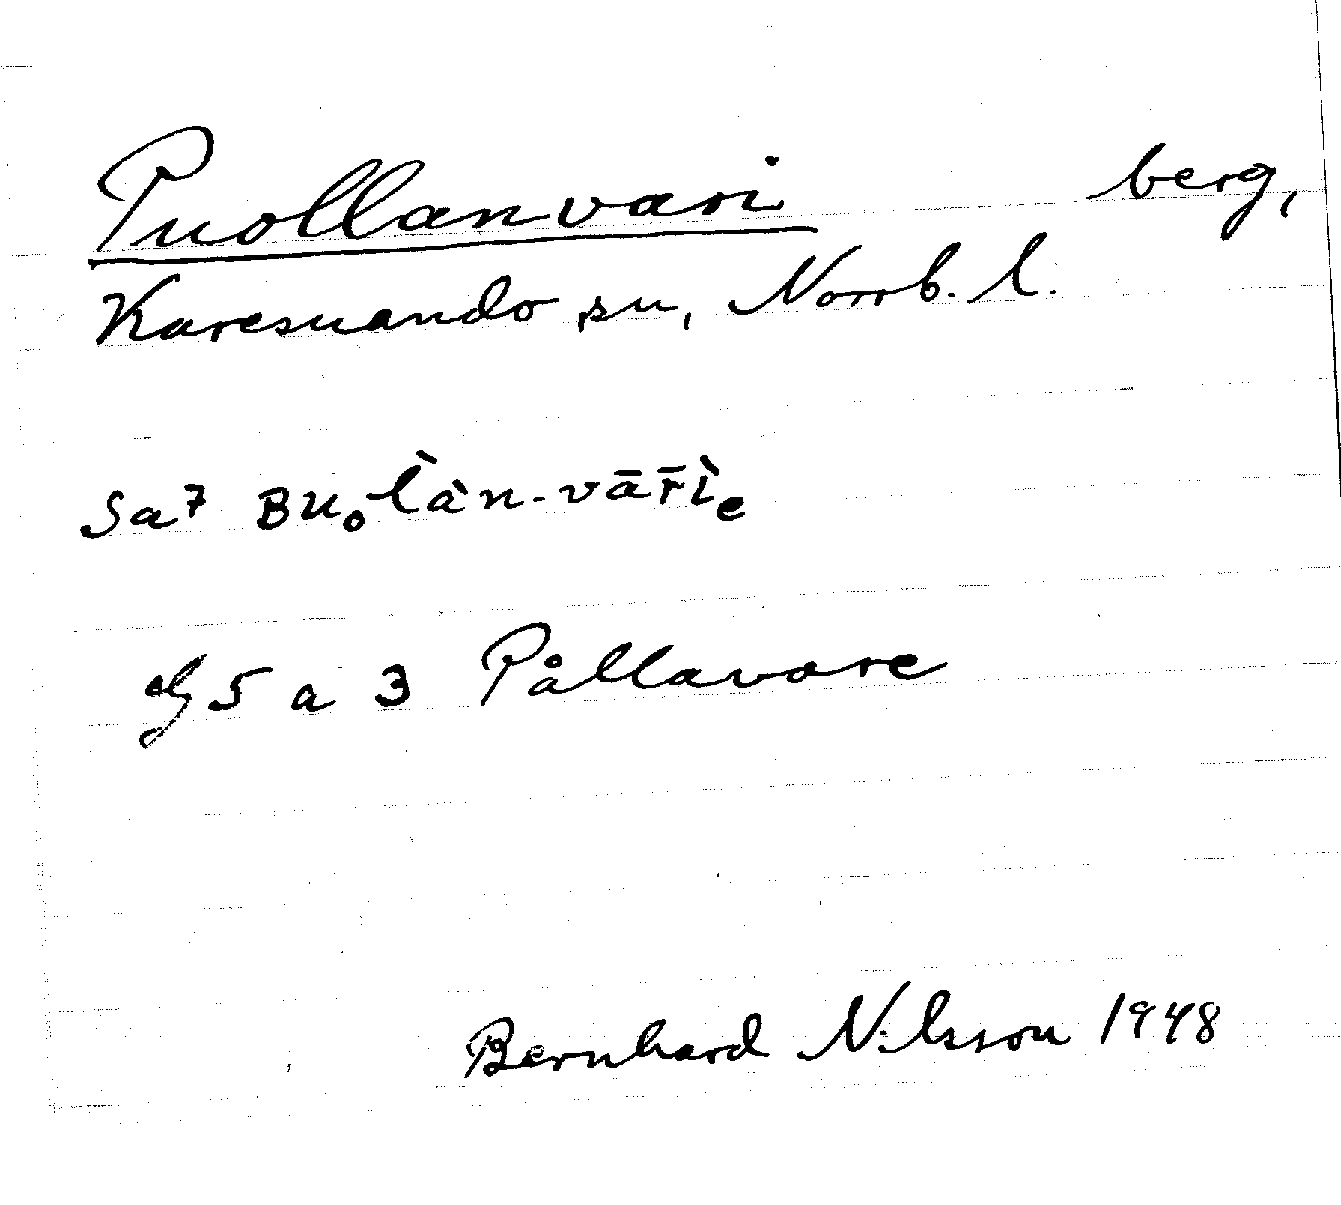 Puollanvari berg,
Karesuando sn, Norrb. l.
Sa7 Buₒl̀àn-vār̄ìₑ
5 a 3 Pållavare
Bernhard Nilsson 1948